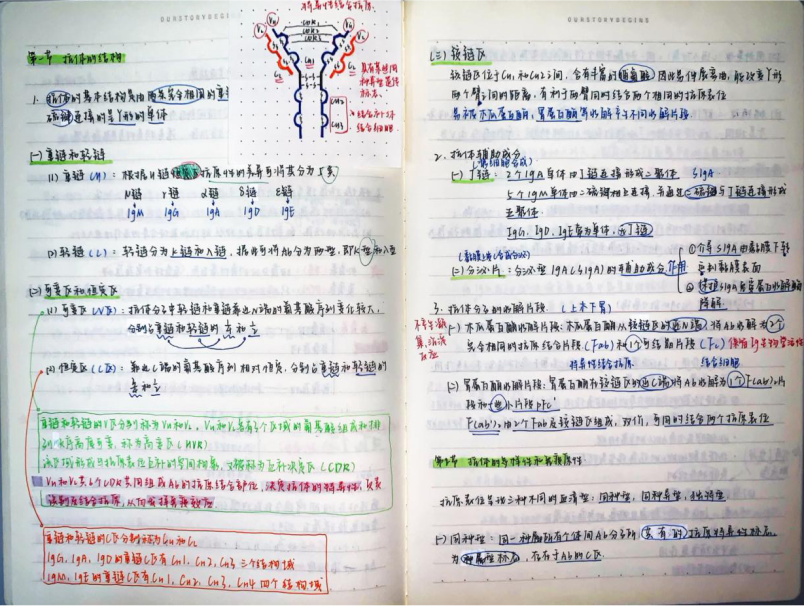 OURSTORYBEGINS
第一节 抗体的结构
1. 抗体的基本结构是由两条完全相同的重
硫键连接的呈Y形的单体
VH
VH
VL
VL
CDR1
CDR2
CDR3
CH1
CL
CH2
CH3
(一) 重链和轻链
(1) 重链(H)：根据H链恒定区抗原性的差异可将其分为5类
μ链 γ链 α链 δ链 ε链
IgM IgG IgA IgD IgE
(2) 轻链(L)：轻链分为κ链和λ链，据此可将Ab分为两型，即κ型和λ型
(二) 可变区和恒定区
(1) 可变区(V区)：抗体分子中轻链和重链靠近N端的氨基酸序列变化较大，
分别占重链和轻链的1/4和1/2
(2) 恒定区(C区)：靠近C端的氨基酸序列相对恒定，分别占重链和轻链的
3/4和1/2
重链和轻链的V区分别称为VH和VL，VH和VL各有3个区域的氨基酸组成和排
列顺序高度可变，称为高变区(HVR)
该区域形成与抗原表位互补的空间构象，又被称为互补决定区(CDR)
VH和VL共6个CDR共同组成Ab的抗原结合部位，决定抗体的特异性，负责
识别及结合抗原，从而发挥免疫效应
重链和轻链的C区分别称为CH和CL
IgG、IgA、IgD的重链C区有CH1、CH2、CH3三个结构域
IgM、IgE的重链C区有CH1、CH2、CH3、CH4四个结构域
OURSTORYBEGINS
(三) 铰链区
铰链区位于CH1和CH2之间，含有丰富的脯氨酸，因此易伸展弯曲，能改变Y形
两个臂之间的距离，有利于两臂同时结合两个相同的抗原表位
易被木瓜蛋白酶、胃蛋白酶等水解产生不同水解片段
2. 抗体辅助成分
(浆细胞合成)
(一) J链：2个IgA单体由J链连接形成二聚体 SIgA
5个IgM单体由二硫键相互连接，并通过二硫键与J链连接形成
五聚体
IgG、IgD、IgE常为单体，无J链
(二) 分泌片：分泌型IgA(SIgA)的辅助成分，作用
①介导SIgA由黏膜下转
运到黏膜表面
②保护SIgA免受蛋白水解酶
降解
3. 抗体分子的水解片段 (上木下胃)
(一) 木瓜蛋白酶水解片段：木瓜蛋白酶从铰链区的近N端，将Ab水解为2个
完全相同的抗原结合片段(Fab)和1个可结晶片段(Fc)
特异性结合抗原
结合细胞
(二) 胃蛋白酶水解片段：胃蛋白酶在铰链区的近C端将Ab水解为1个F(ab')2片
段和一些小片段pFc'
F(ab')2由2个Fab及铰链区组成，双价，可同时结合两个抗原表位
第2节 抗体的多样性和免疫原性
抗原表位呈现三种不同的血清型：同种型，同种异型，独特型
(一) 同种型：同一种属所有个体同Ab分子所共有的抗原特异性标志，
为种属型标志，存在于Ab的C区